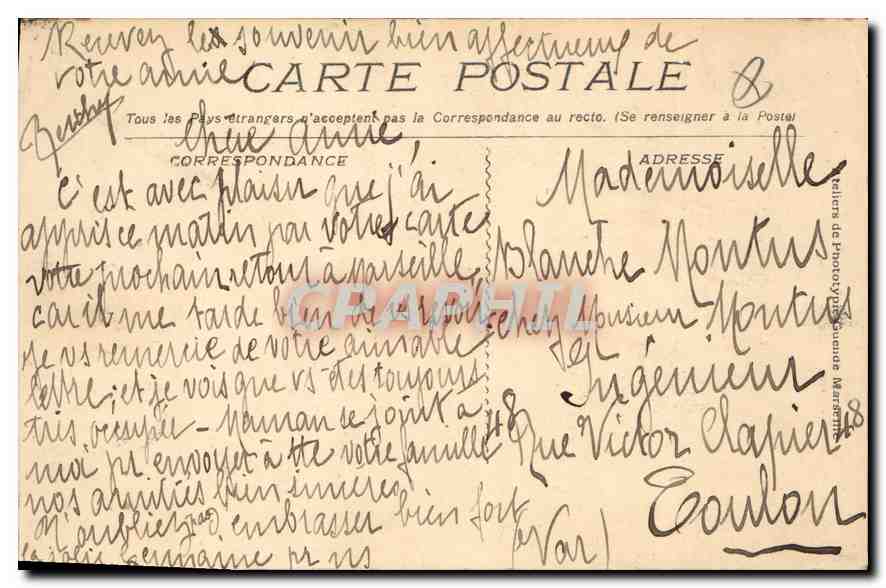 Recevez les souvenir bien affectueux de
votre amie
Berthe
CARTE POSTALE
Tous les Pays étrangers n'acceptent pas la Correspondance au recto. (Se renseigner à la Poste)
Chère amie,
CORRESPONDANCE
C'est avec plaisir que j'ai
appris ce matin par votre carte
votre prochain retour à Marseille,
car il me tarde bien de vs revoir
Je vs remercie de votre aimable
lettre, et je vois que vs êtes toujours
très occupée - Maman se joint à
moi pr envoyer à tte votre famille
nos amitiés bien sincères
N'oubliez pas d'embrasser bien fort
semaine pr ns
ADRESSE
Mademoiselle
Blanche Montus
chez Monsieur Montus
Ingénieur
48 Rue Victor Clapier 48
Toulon
(Var)
Ateliers de Phototypie Guende Marseille
CPAPHIL